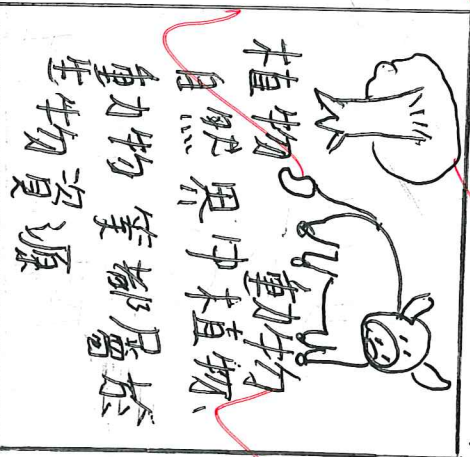 植物
動物
自然界中植物、
動物等都屬於
生物資源